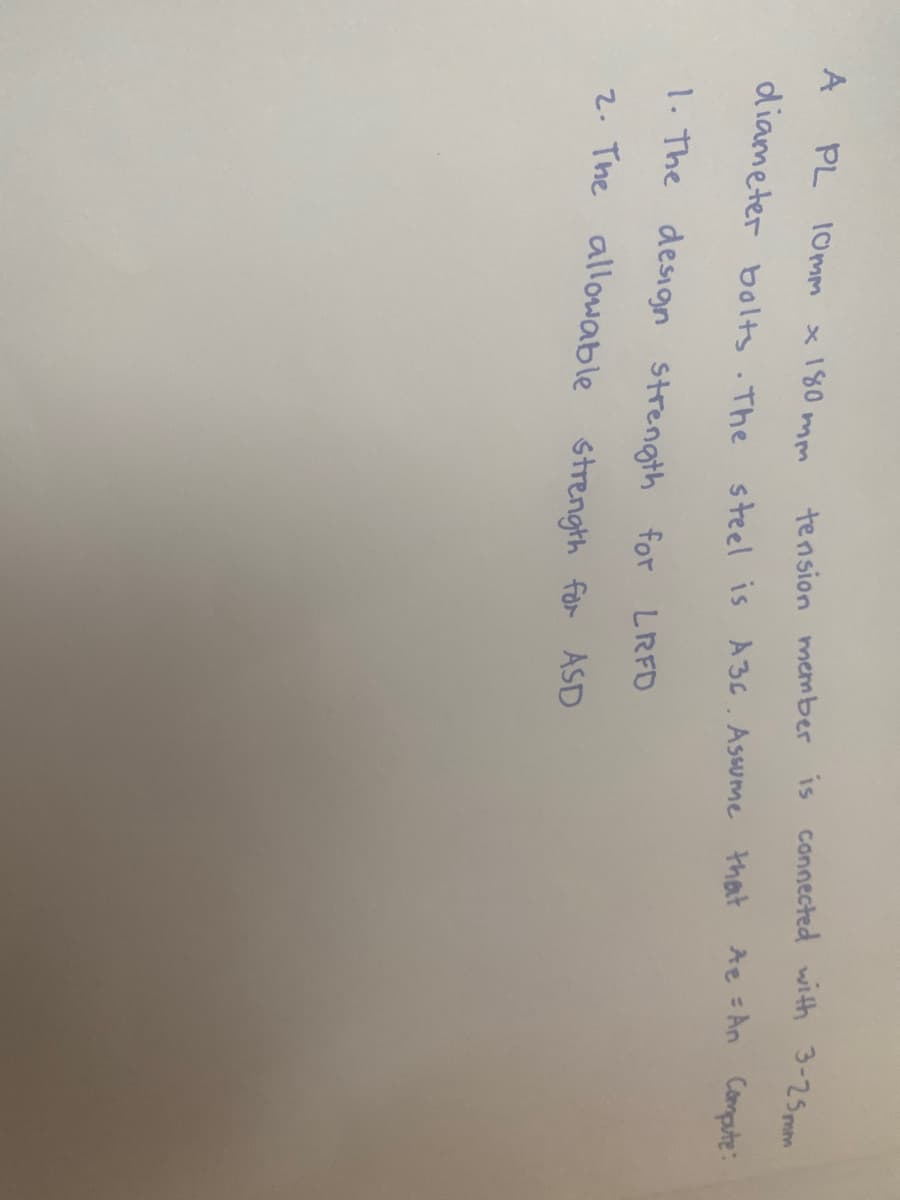 A PL 10mm x 180 mm tension member is connected with 3-25mm
diameter bolts. The steel is A36. Assume that Ae = An Compute:
1. The design strength for LRFD
2. The allowable strength for ASD